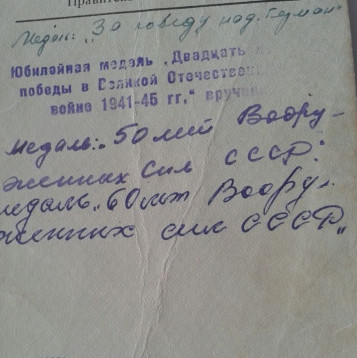 Правитель
Медаль: „За победу над Герман
Юбилейная медаль „Двадцать л
победы в Великой Отечествен
войне 1941-45 гг." вруче
медаль: „50 лет Воору-
женных Сил СССР."
медаль „60 лет Воору-
женных сил СССР„